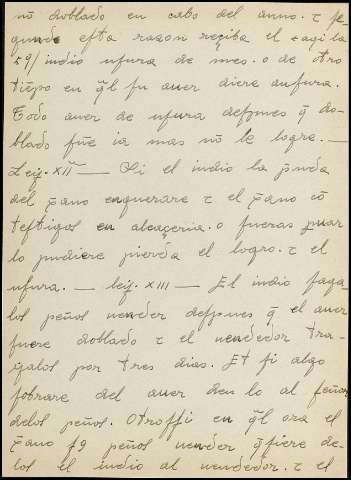 nō doblado en cabo del anno. τ ſe-
gunde eſta razon reçiba el
indio uſura de mes. o de otro
tiēpo en q̄l ſu auer diere auſura.
Todo auer de uſura deſpues q̄ do-
blado fue ia mas nō le logre. —
Leiẏ. XII — Si el indio la p̄nda
del p̄ano enguerare τ el p̄ano cō
teſtigos en alcaçeria. o fueras puar
lo pudiere pierda el logro. τ el
uſura. — leiẏ. XIII — El indio faga-
los peños uender deſpues q̄ el auer
fuere doblado τ el uendedor tra-
galos por tres dias. Et ſi algo
ſobrare del auer den lo al ſeñor
delos peños. Otroſſi en q̄l ora el
peños uender q̄ſiere de-
los el indio al uendedor. τ el